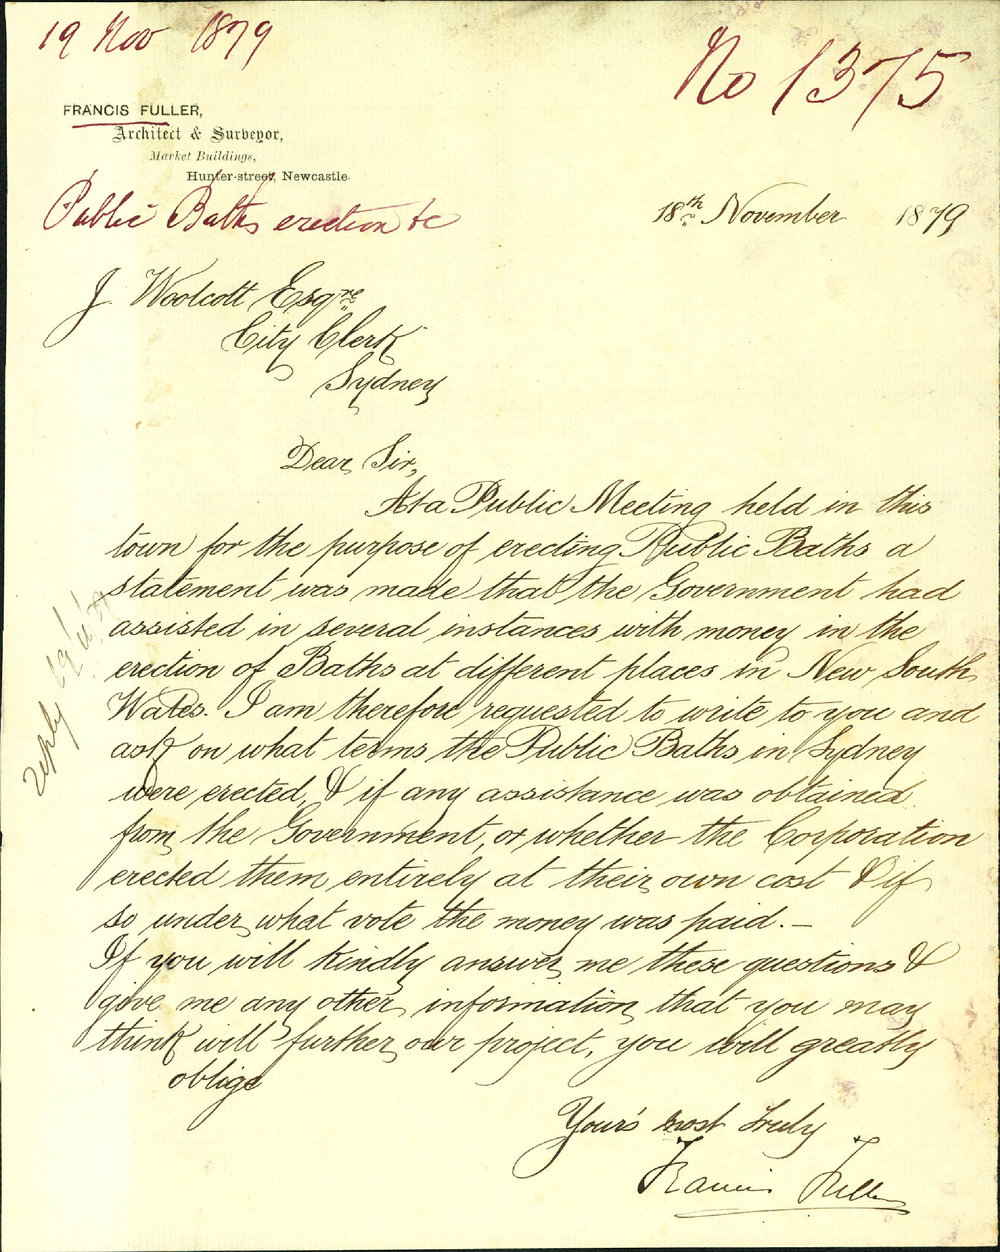 19 Nov 1879
No 1375
FRANCIS FULLER,
Architect & Surveyor,
Market Buildings,
Hunter-street, Newcastle.
Public Baths erection &c
18th November 1879
J. Woolcott Esqre
City Clerk
Sydney
Dear Sir,
At a Public Meeting held in this
town for the purpose of erecting Public Baths a
statement was made that the Government had
assisted in several instances with money in the
erection of Baths at different places in New South
Wales. I am therefore requested to write to you and
ask on what terms the Public Baths in Sydney
were erected, & if any assistance was obtained
from the Government, or whether the Corporation
erected them entirely at their own cost & if
so under what vote the money was paid. —
If you will kindly answer me these questions &
give me any other information that you may
think will further our project, you will greatly
oblige
Your's most truly
Francis Fuller
reply